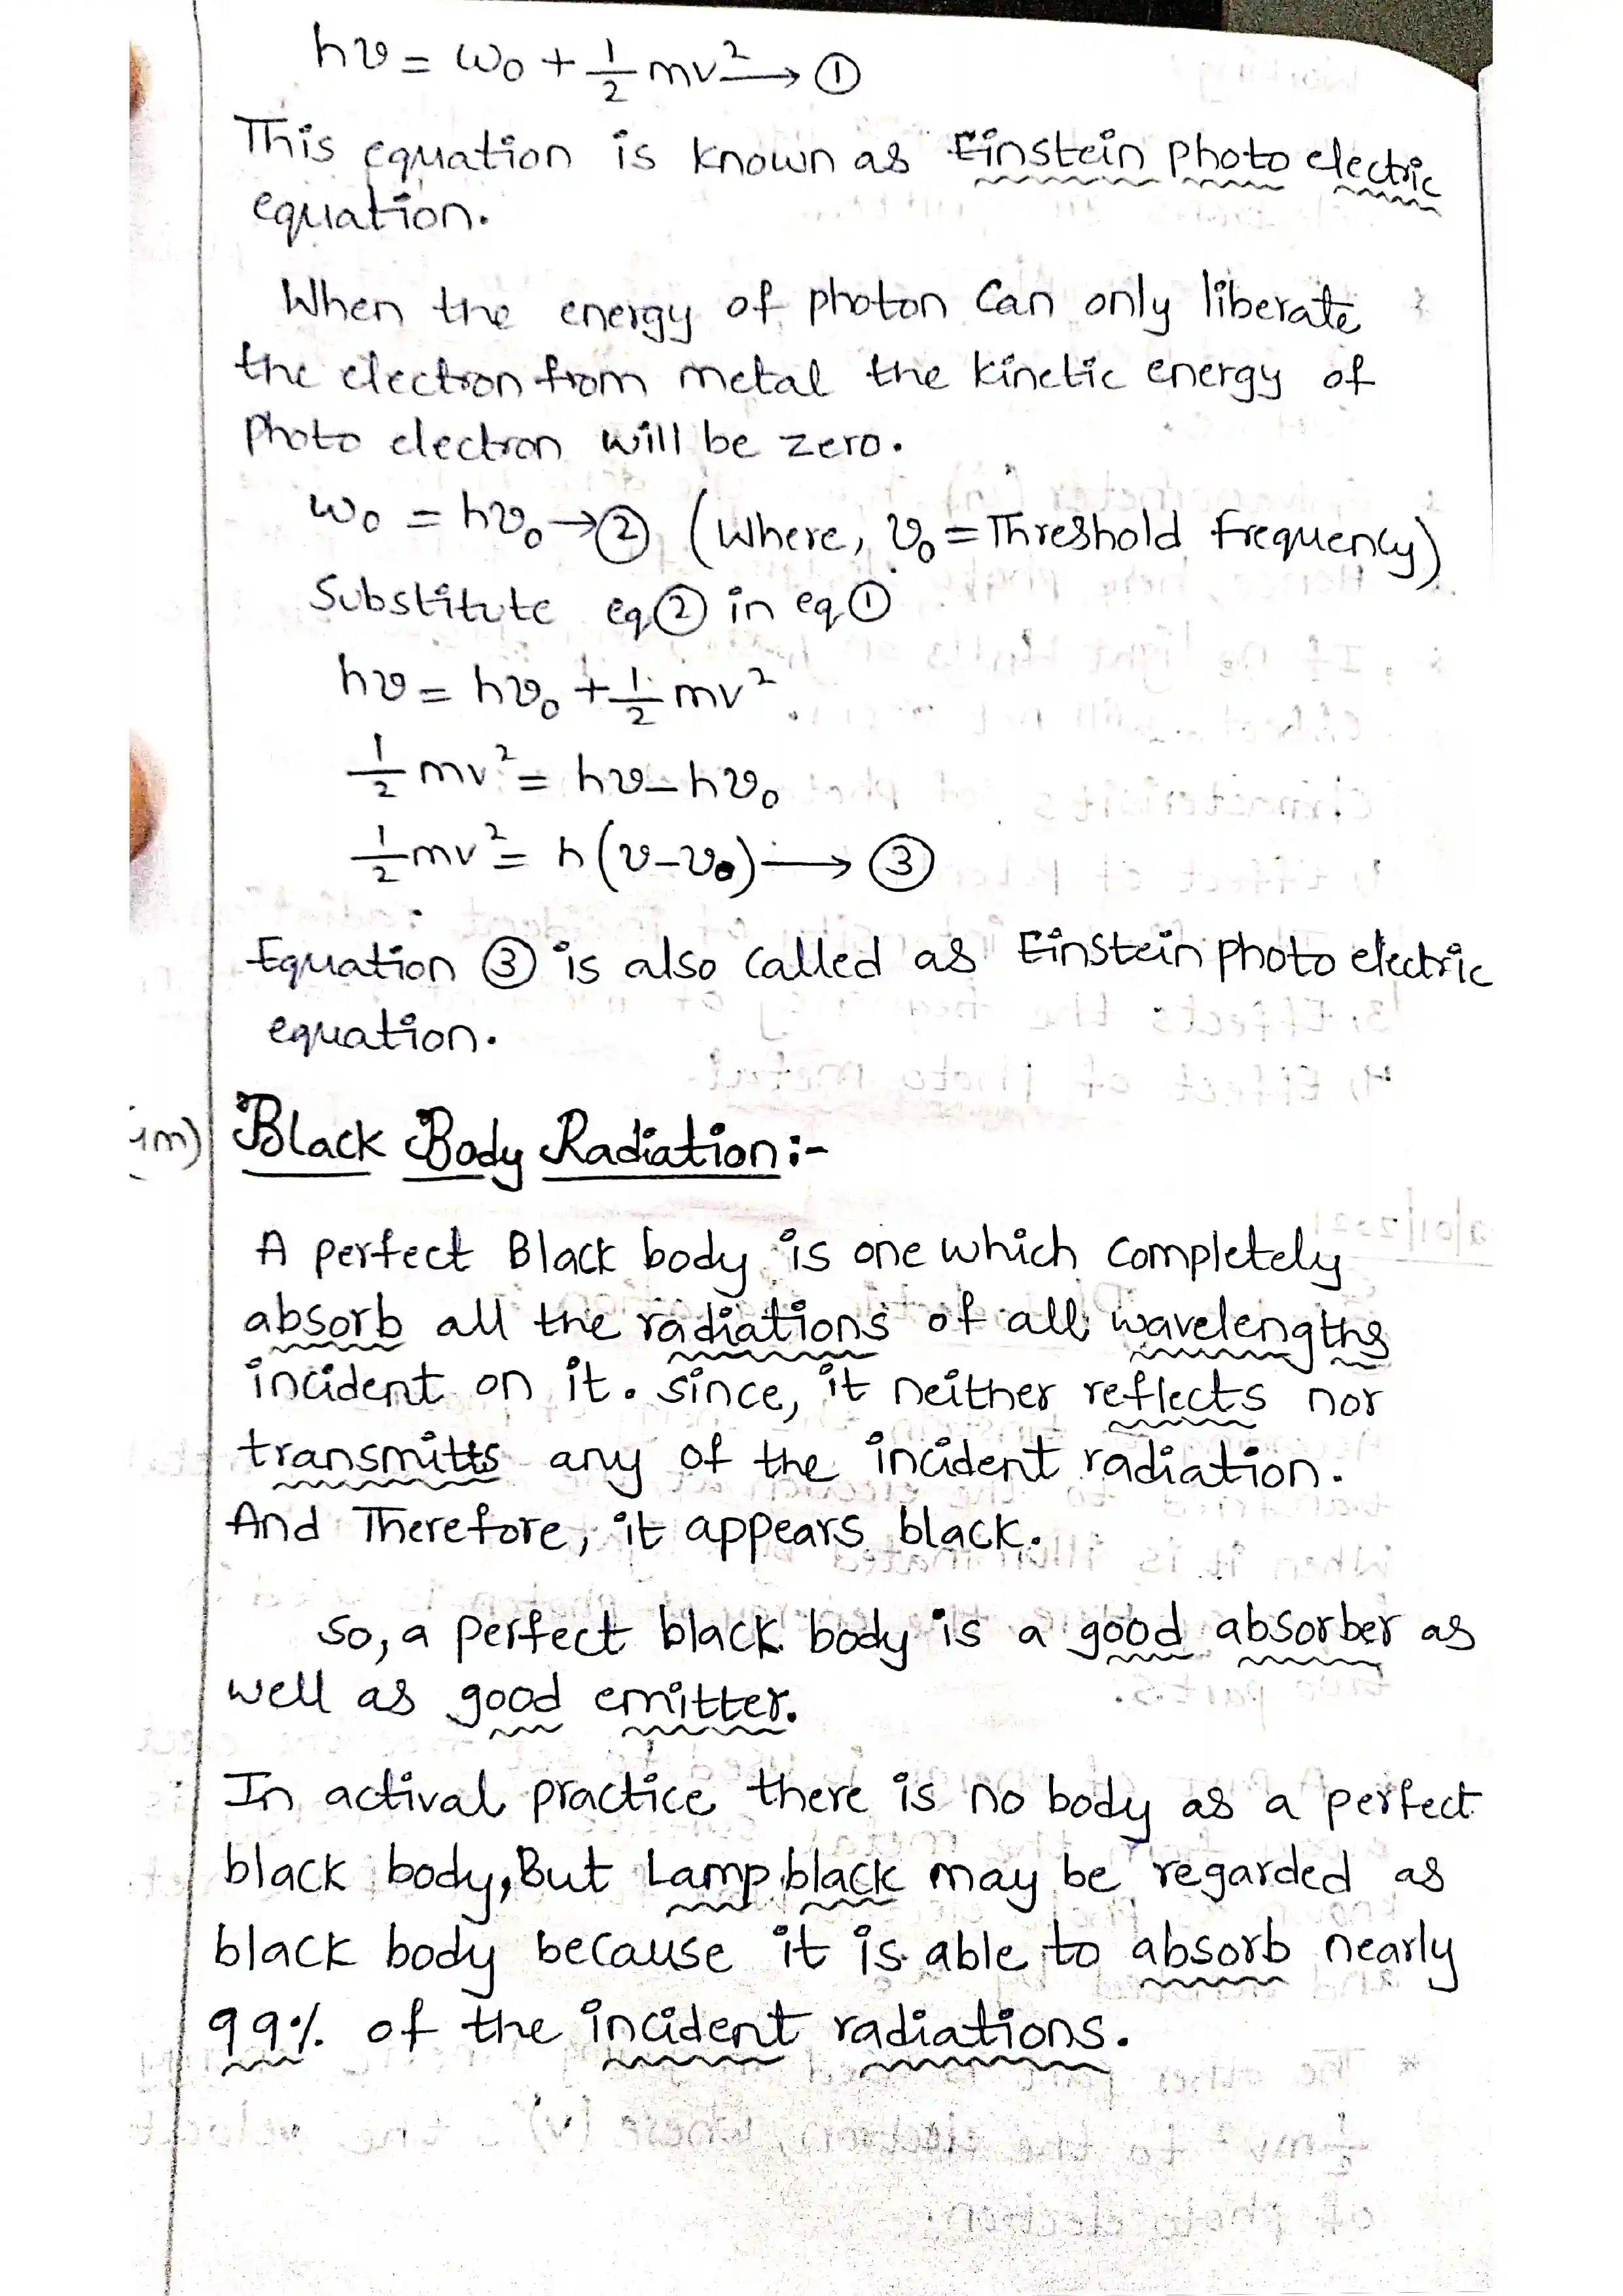 hν = W₀ + 1/2 mv² → ①
This equation is known as Einstein photo electric
equation.
When the energy of photon can only liberate
the electron from metal the kinetic energy of
photo electron will be zero.
W₀ = hν₀ → ② (Where, ν₀ = Threshold frequency)
Substitute eq ② in eq ①
hν = hν₀ + 1/2 mv²
1/2 mv² = hν - hν₀
1/2 mv² = h(ν - ν₀) → ③
Equation ③ is also called as Einstein photo electric
equation.
Black Body Radiation :-
A perfect Black body is one which completely
absorb all the radiations of all wavelengths
incident on it. since, it neither reflects nor
transmitts any of the incident radiation.
And Therefore, it appears black.
So, a perfect black body is a good absorber as
well as good emitter.
In actival practice there is no body as a perfect
black body, But Lamp black may be regarded as
black body because it is able to absorb nearly
99% of the incident radiations.